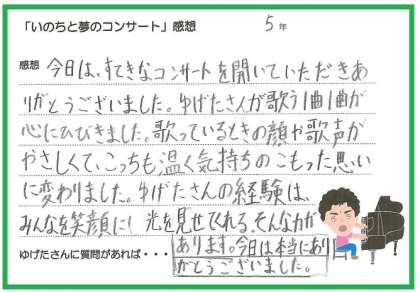 「いのちと夢のコンサート」感想
5年
感想 今日は、すてきなコンサートを開いていただきあ
りがとうございました。ゆげたさんが歌う1曲1曲が
心にひびきました。歌っているときの顔や歌声が
やさしくて、こっちも温く気持ちのこもった思い
に変わりました。ゆげたさんの経験は、
みんなを笑顔にし光を見せてくれる、そんな力が
ゆげたさんに質問があれば・・・
あります。今日は本当にあり
がとうございました。